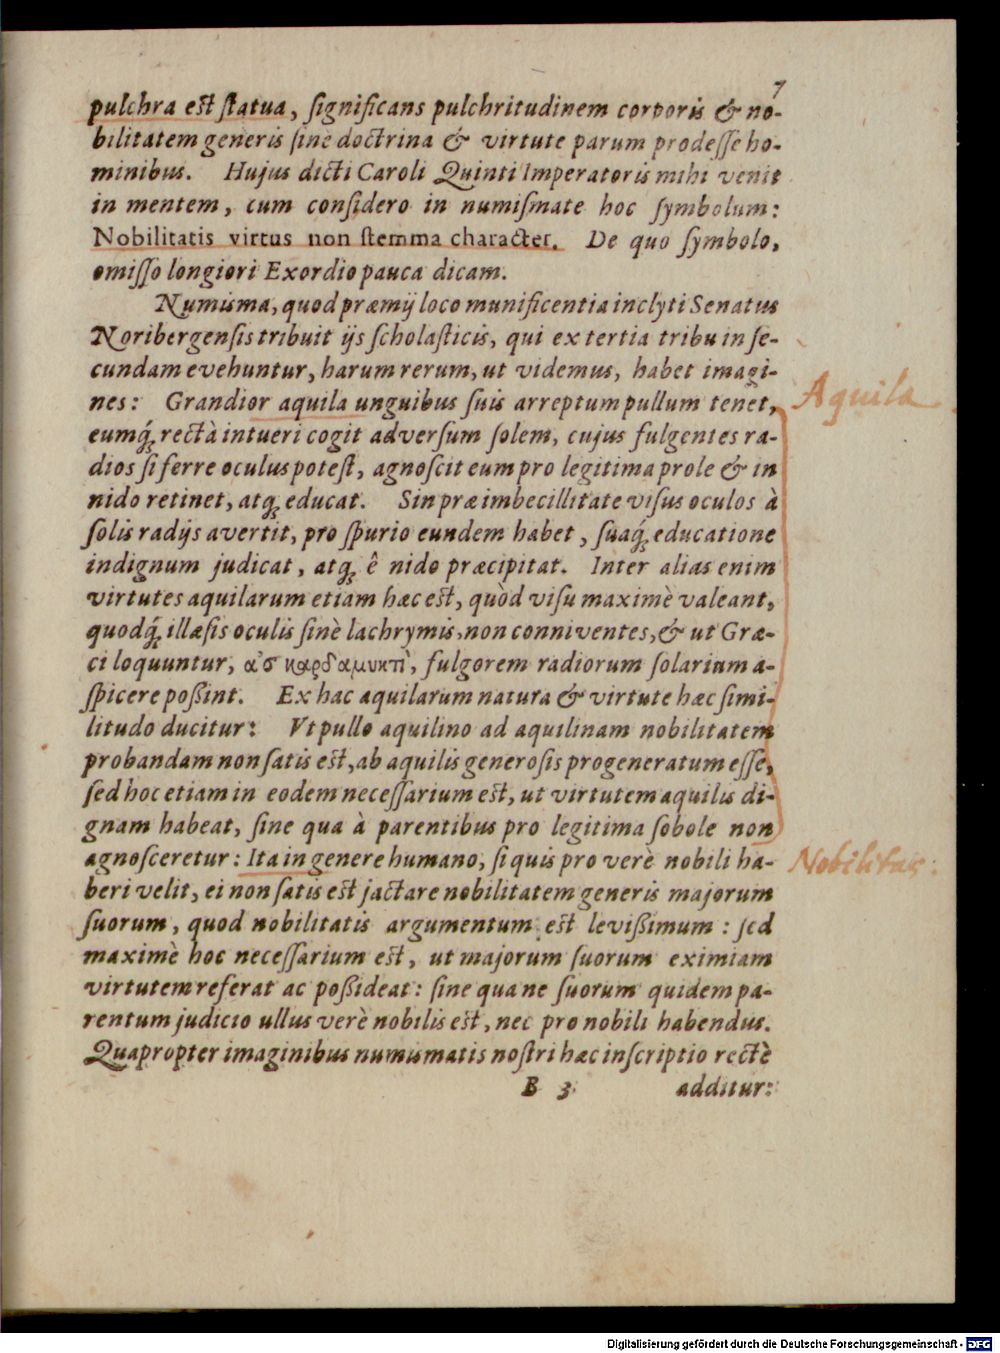 7
pulchra est statua, significans pulchritudinem corporis & no-
bilitatem generis sine doctrina & virtute parum prodesse ho-
minibus. Hujus dicti Caroli Quinti Imperatoris mihi venit
in mentem, cum considero in numismate hoc symbolum:
Nobilitatis virtus non stemma character. De quo symbolo,
omisso longiori Exordio pauca dicam.
Numisma, quod præmij loco munificentia inclyti Senatus
Noribergensis tribuit ijs scholasticis, qui ex tertia tribu in se-
cundam evehuntur, harum rerum, ut videmus, habet imagi-
nes: Grandior aquila unguibus suis arreptum pullum tenet,
Aquila
eumq́; rectà intueri cogit adversum solem, cujus fulgentes ra-
dios si ferre oculus potest, agnoscit eum pro legitima prole & in
nido retinet, atq; educat. Sin præ imbecillitate visus oculos à
solis radijs avertit, pro spurio eundem habet, suaq́; educatione
indignum judicat, atq; ê nido præcipitat. Inter alias enim
virtutes aquilarum etiam hæc est, quòd visu maximè valeant,
quodq́; illæsis oculis sinè lachrymis, non conniventes, & ut Græ-
ci loquuntur, ἀσκαρδαμυκτὶ, fulgorem radiorum solarium a-
spicere poßint. Ex hac aquilarum natura & virtute hæc simi-
litudo ducitur: Ut pullo aquilino ad aquilinam nobilitatem
probandam non satis est, ab aquilis generosis progeneratum esse,
sed hoc etiam in eodem necessarium est, ut virtutem aquilis di-
gnam habeat, sine qua à parentibus pro legitima sobole non
agnosceretur: Ita in genere humano, si quis pro verè nobili ha-
Nobilitas:
beri velit, ei non satis est jactare nobilitatem generis majorum
suorum, quod nobilitatis argumentum est levißimum: sed
maximè hoc necessarium est, ut majorum suorum eximiam
virtutem referat ac poßideat: sine qua ne suorum quidem pa-
rentum judicio ullus verè nobilis est, nec pro nobili habendus.
Quapropter imaginibus numismatis nostri hæc inscriptio rectè
B 3 additur:
Digitalisierung gefördert durch die Deutsche Forschungsgemeinschaft - DFG